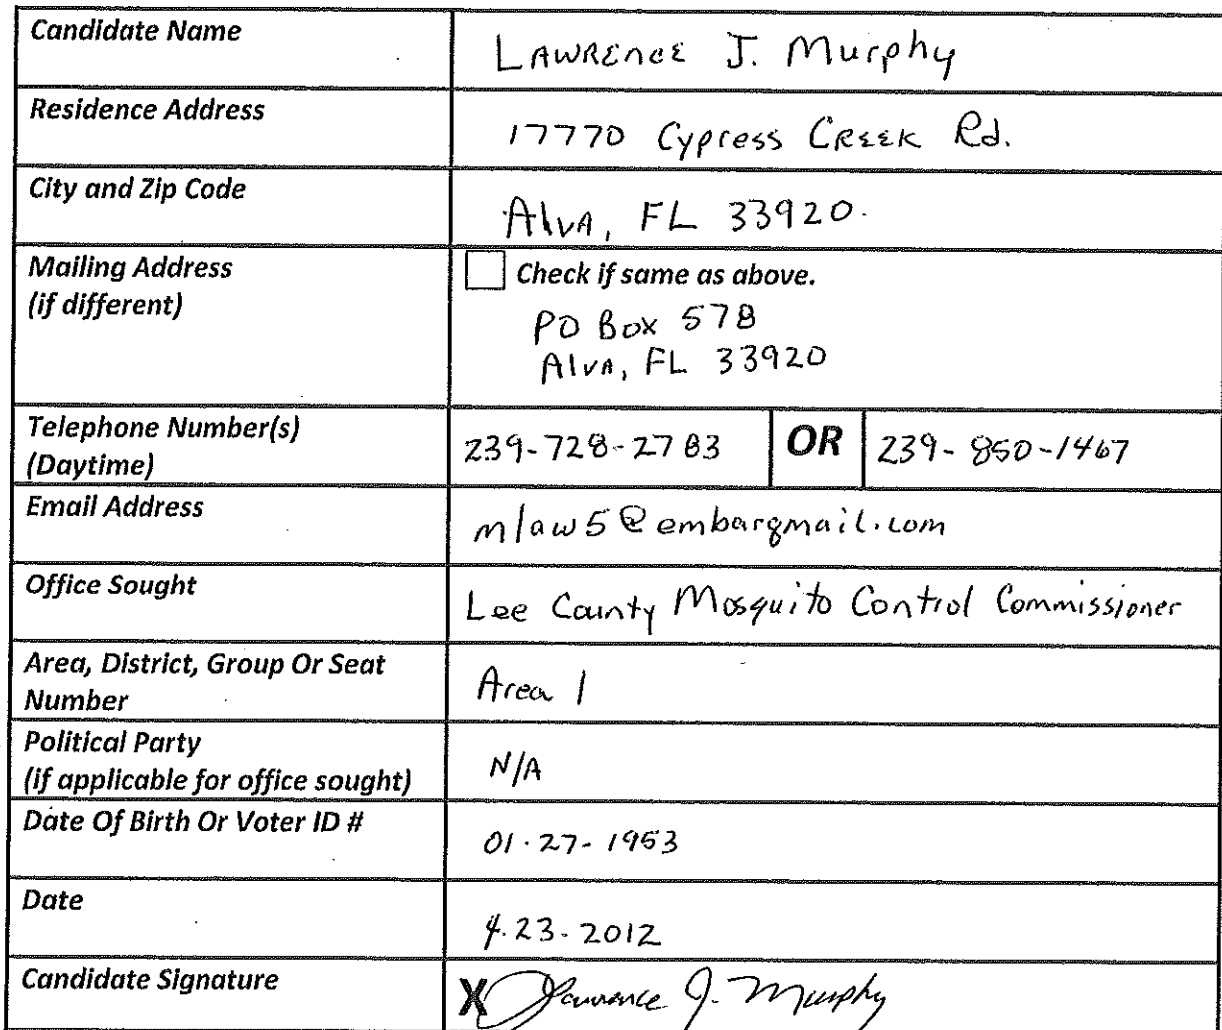 Candidate Name LAWRENCE J. Murphy
Residence Address 17770 Cypress CREEK Rd.
City and Zip Code AlvA, FL 33920
Mailing Address
(if different)
Check if same as above.
PO Box 578
AlvA, FL 33920
Telephone Number(s)
(Daytime)
239-728-2783 OR 239-850-1467
Email Address mlaw5@embarqmail.com
Office Sought Lee County Mosquito Control Commissioner
Area, District, Group Or Seat
Number
Area 1
Political Party
(if applicable for office sought)
N/A
Date Of Birth Or Voter ID # 01-27-1953
Date 4-23-2012
Candidate Signature X Lawrence J. Murphy